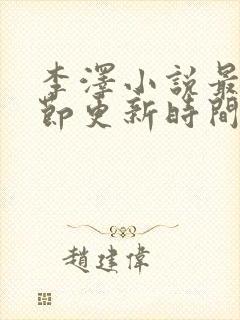 李澤小說最
節更新時間
趙建偉